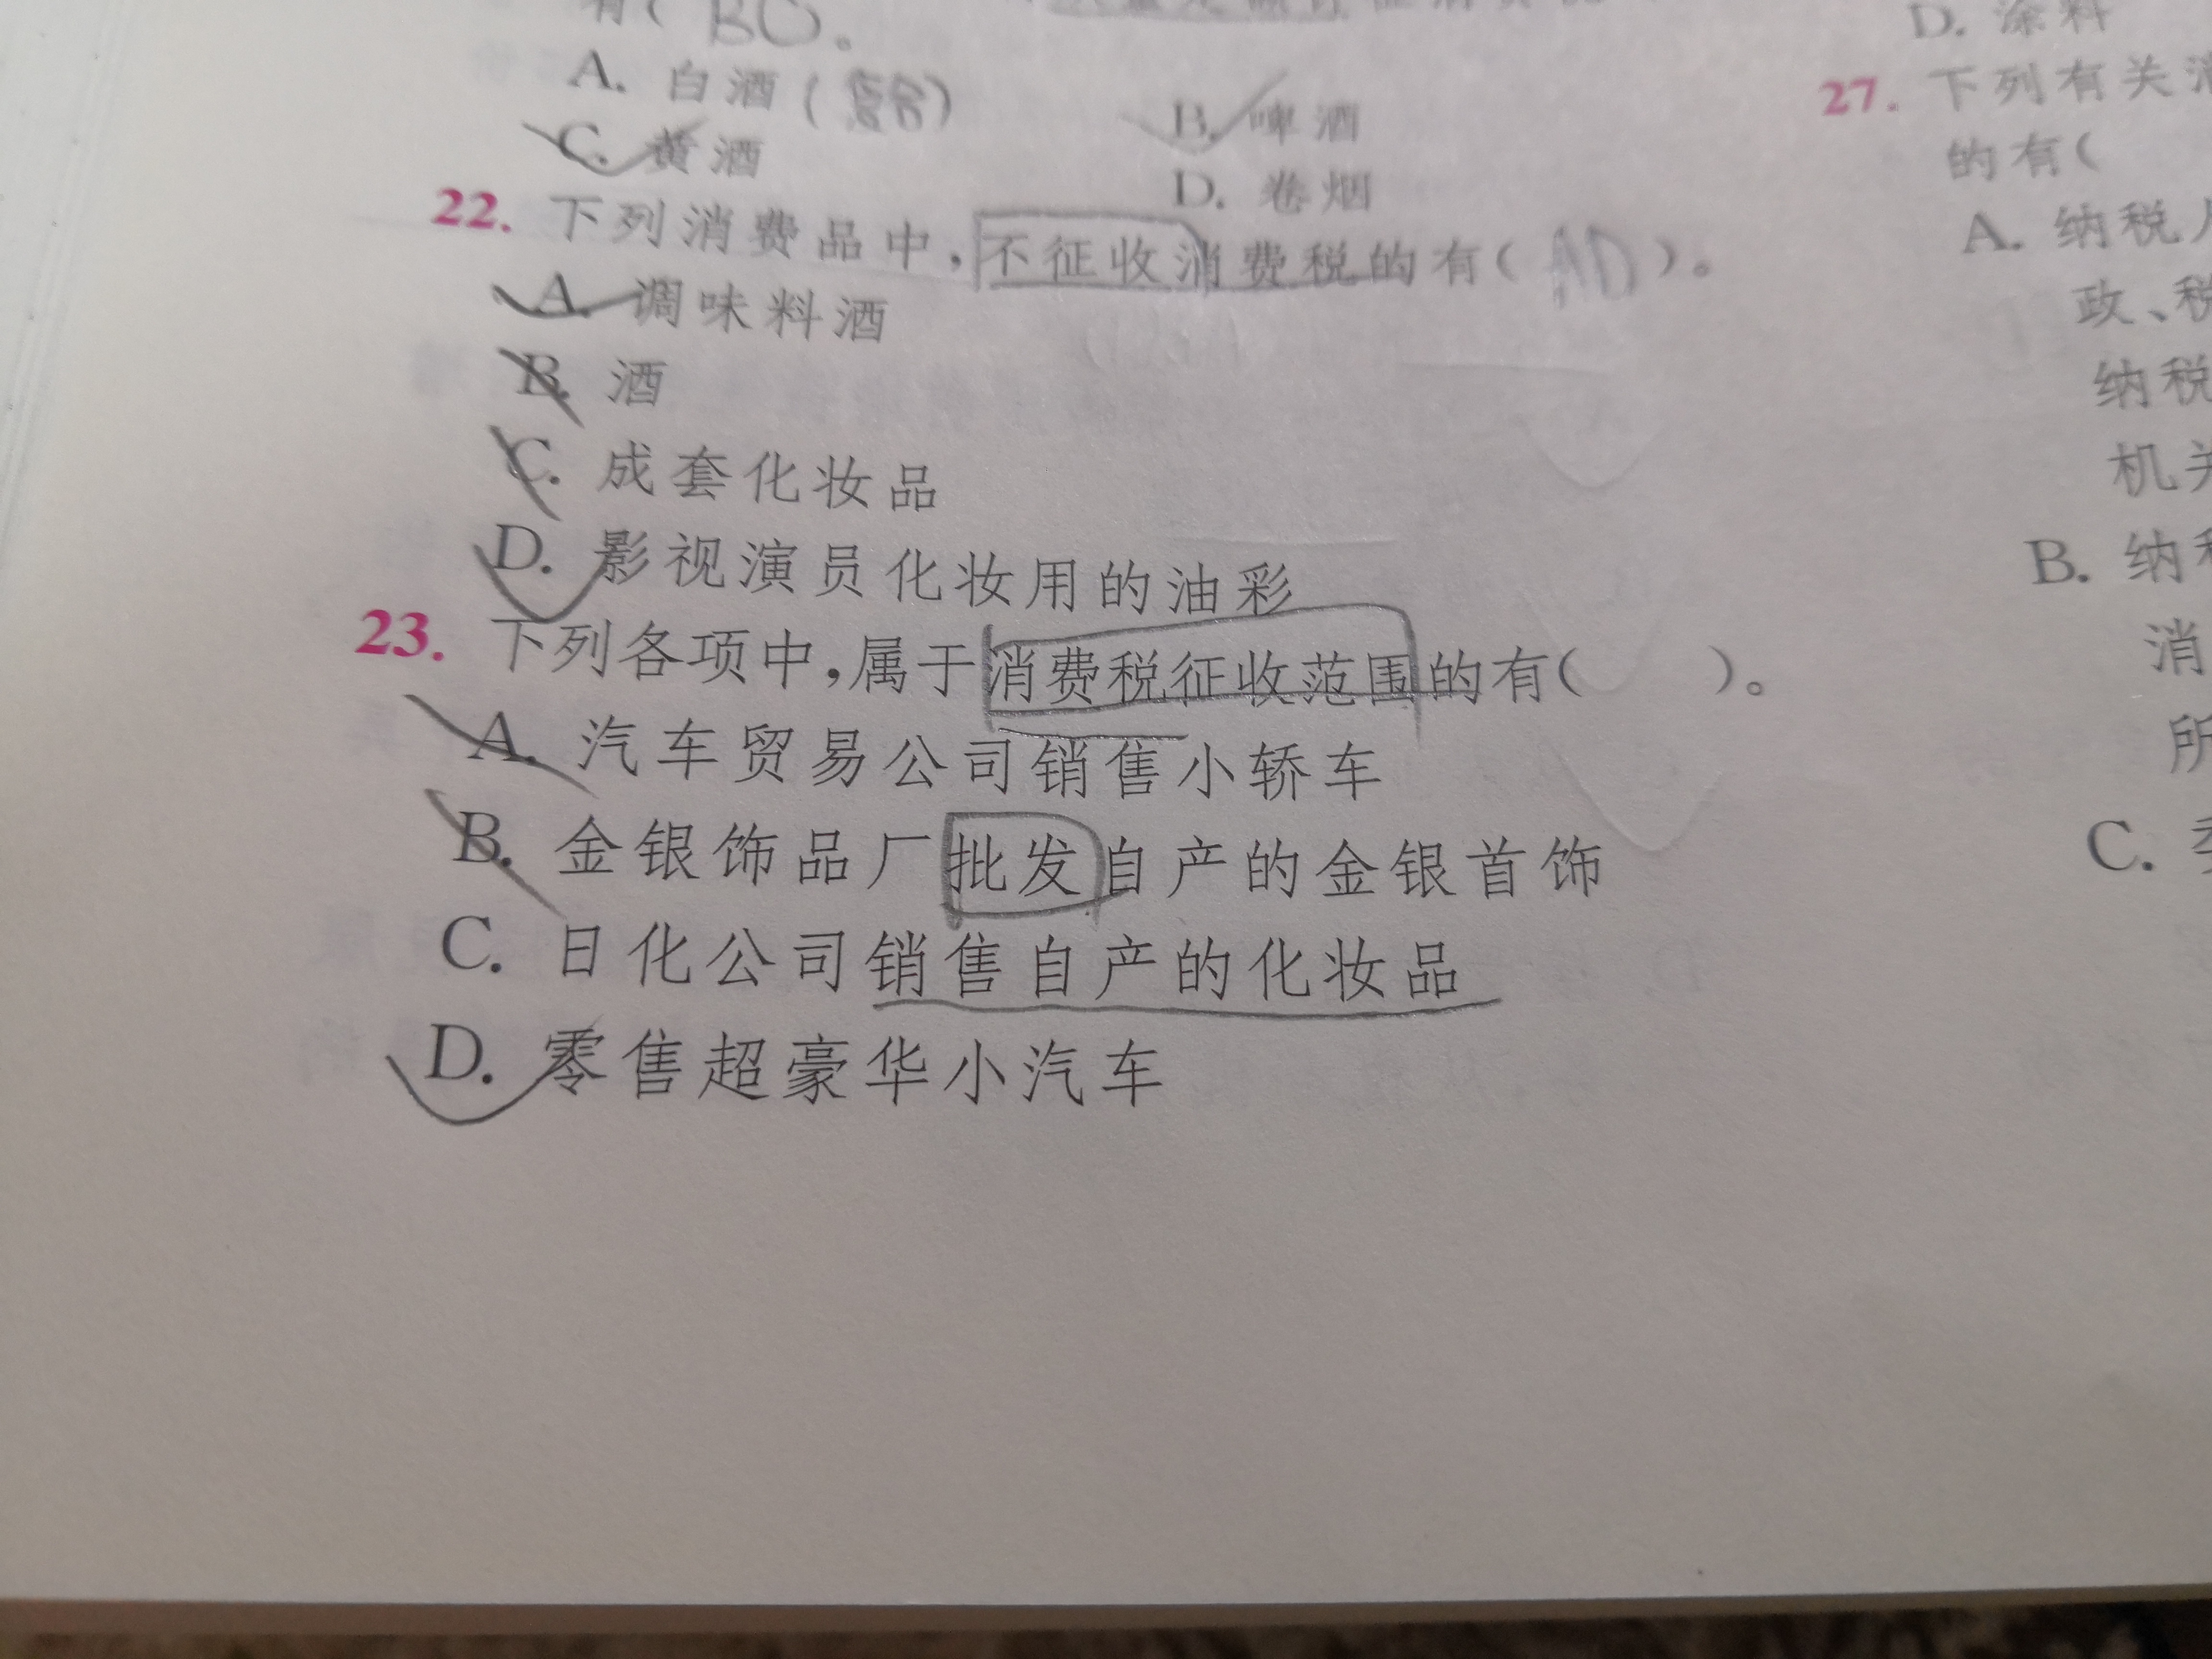 有( BC 。
A. 白酒 (
B. 啤酒
C. 黄酒
D. 卷烟
22. 下列消费品中,不征收消费税的有( AD )。
A. 调味料酒
B. 酒
C. 成套化妆品
D. 影视演员化妆用的油彩
23. 下列各项中,属于消费税征收范围的有( )。
A. 汽车贸易公司销售小轿车
B. 金银饰品厂批发自产的金银首饰
C. 日化公司销售自产的化妆品
D. 零售超豪华小汽车
D. 涂料
27. 下列有关
的有(
A. 纳税
政、税
纳税
机关
B. 纳
消
所
C.